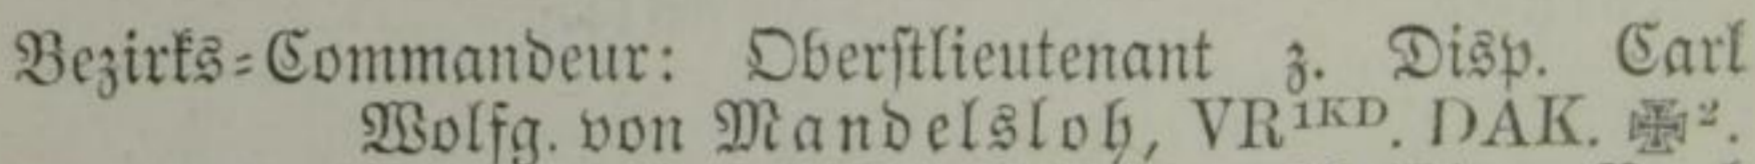 Bezirks-Commandeur: Oberstlieutenant z. Disp. Carl
Wolfg. von Mandelsloh, VR1KD. DAK. ✠2.